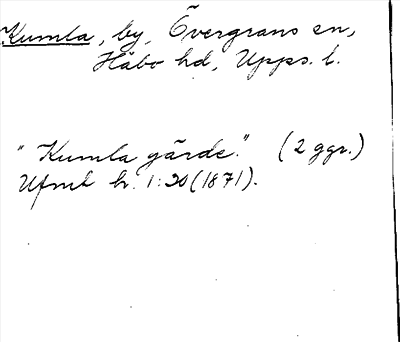 Kumla, by, Övergrans sn,
Håbo hd, Upps. l.
"Kumla gärde." (2 ggr.)
Ufmt h. 1:20 (1871).